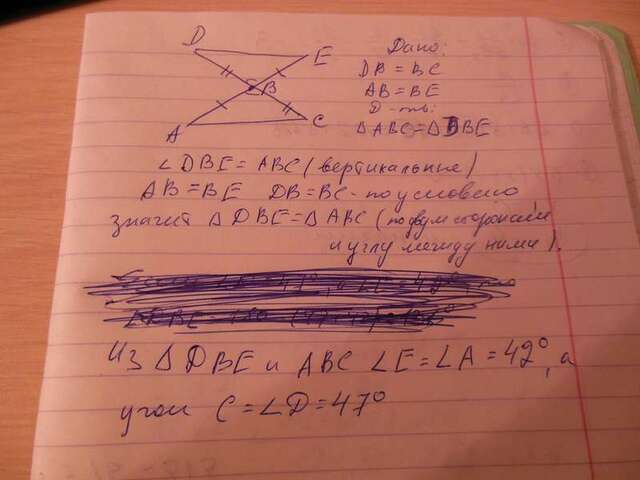 D
E
B
A
C
Дано:
DB = BC
AB = BE
Д-ть:
△ABC = △DBE
∠DBE = ABC (вертикальные)
AB = BE DB = BC - по условию
значит △DBE = △ABC (по двум сторонам
и углу между ними).
Из △DBE и ABC ∠E = ∠A = 42°, а
угол C = ∠D = 47°